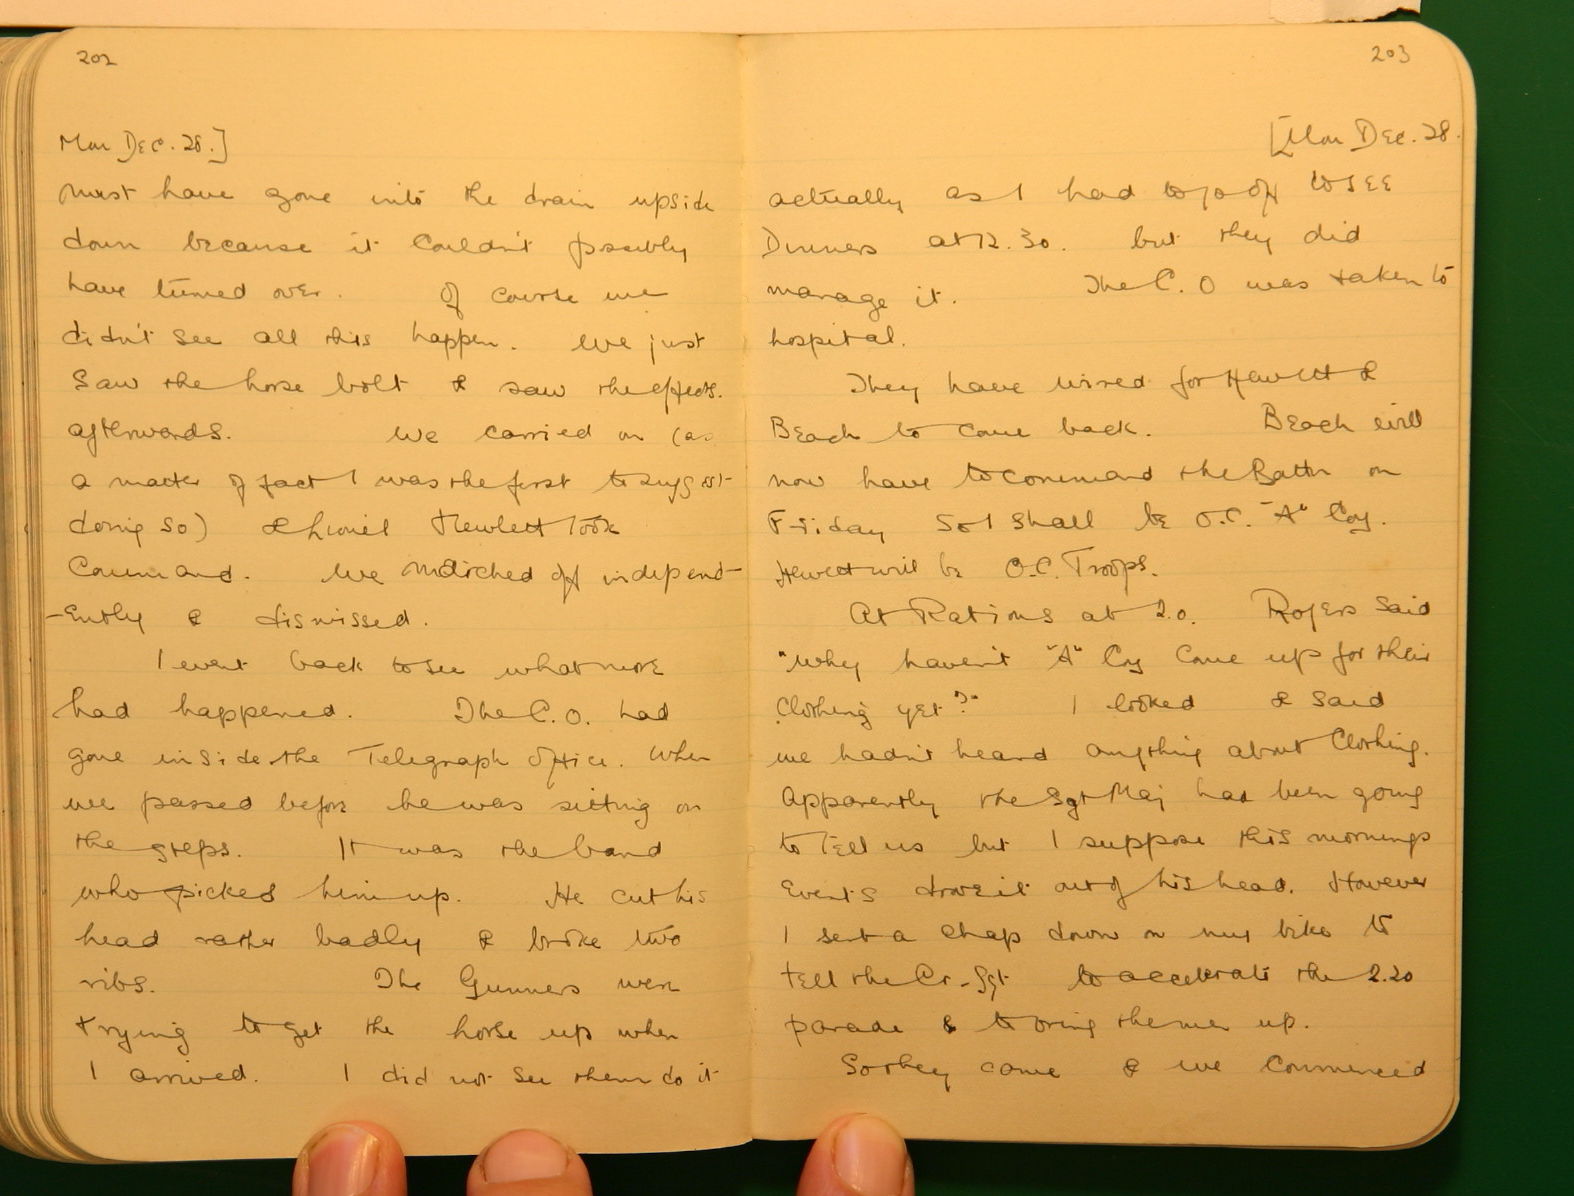 202
Mon Dec. 28.]
must have gone into the drain upside
down because it couldn't possibly
have turned over. Of course we
didn't see all this happen. We just
saw the horse bolt & saw the effects.
afterwards. We carried on (as
a matter of fact I was the first to suggest
doing so) & Lionel Hewlett took
Command. We marched off independ-
-ently & dismissed.
I went back to see what more
had happened. The C.O. had
gone inside the Telegraph Office. When
we passed before he was sitting on
the steps. It was the band
who picked him up. He cut his
head rather badly & broke two
ribs. The Gunners were
trying to get the horse up when
I arrived. I did not see them do it
203
[Mon Dec. 28.
actually as I had to go off to see
Dinners at 12.30. but they did
manage it. The C.O was taken to
hospital.
They have wired for Hewett &
Beach to come back. Beach will
now have to command the Battn on
Friday so I shall be O.C. "A" Coy.
Hewett will be O.C. Troops.
At Rations at 2.0. Rogers said
"Why haven't "A" Coy come up for their
Clothing yet?" I looked & said
we hadn't heard anything about Clothing.
Apparently the Sgt Maj had been going
to tell us but I suppose this mornings
Events drove it out of his head. However
I sent a chap down on my bike to
tell the Cr-Sgt to accelerate the 2.20
parade & to bring the men up.
So they came & we commenced